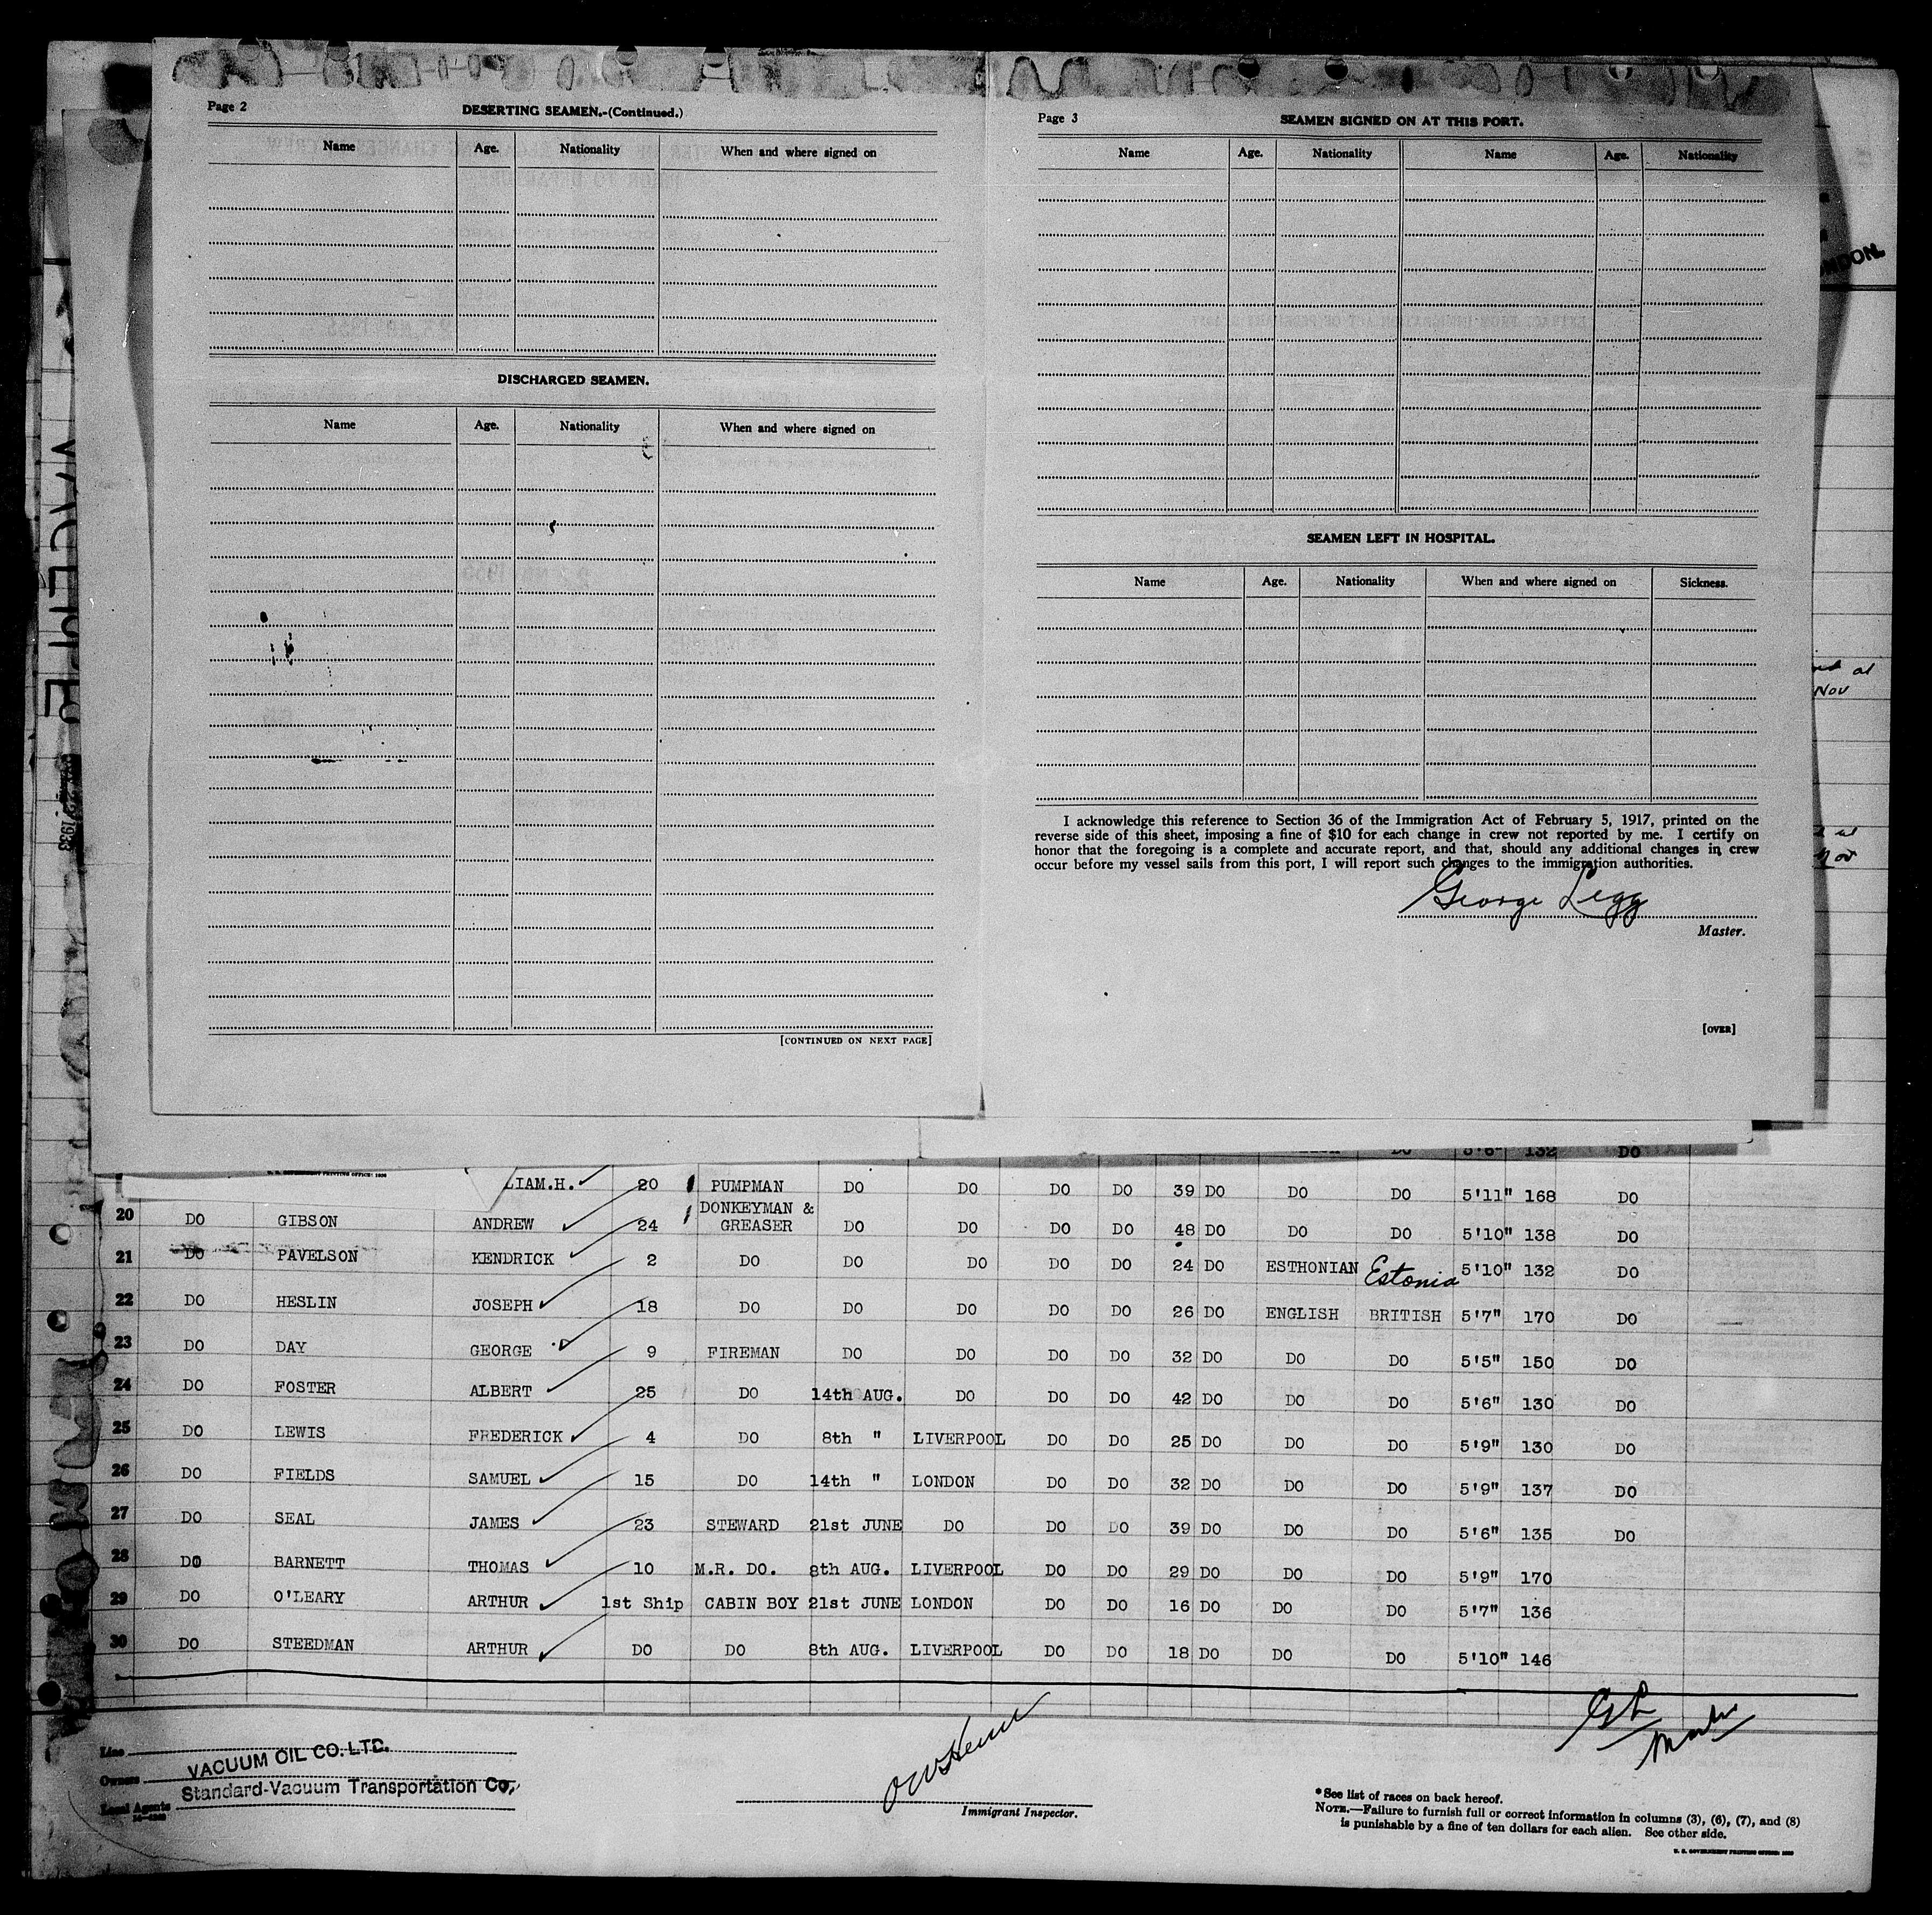 Page 2
DESERTING SEAMEN.-(Continued.)
Name Age. Nationality When and where signed on
DISCHARGED SEAMEN.
Name Age. Nationality When and where signed on
[CONTINUED ON NEXT PAGE]
Page 3
SEAMEN SIGNED ON AT THIS PORT.
Name Age. Nationality Name Age. Nationality
SEAMEN LEFT IN HOSPITAL.
Name Age. Nationality When and where signed on Sickness.
I acknowledge this reference to Section 36 of the Immigration Act of February 5, 1917, printed on the
reverse side of this sheet, imposing a fine of $10 for each change in crew not reported by me. I certify on
honor that the foregoing is a complete and accurate report, and that, should any additional changes in crew
occur before my vessel sails from this port, I will report such changes to the immigration authorities.
George Legg
Master.
[OVER]
Nov
5'6" 132 DO
LIAM.H. 20 PUMPMAN DO DO DO DO 39 DO DO DO 5'11" 168 DO
20 DO GIBSON ANDREW 24 DONKEYMAN & GREASER DO DO DO DO 48 DO DO DO 5'10" 138 DO
21 DO PAVELSON KENDRICK 2 DO DO DO DO DO 24 DO ESTHONIAN Estonia 5'10" 132 DO
22 DO HESLIN JOSEPH 18 DO DO DO DO DO 26 DO ENGLISH BRITISH 5'7" 170 DO
23 DO DAY GEORGE 9 FIREMAN DO DO DO DO 32 DO DO DO 5'5" 150 DO
24 DO FOSTER ALBERT 25 DO 14th AUG. DO DO DO 42 DO DO DO 5'6" 130 DO
25 DO LEWIS FREDERICK 4 DO 8th " LIVERPOOL DO DO 25 DO DO DO 5'9" 130 DO
26 DO FIELDS SAMUEL 15 DO 14th " LONDON DO DO 32 DO DO DO 5'9" 137 DO
27 DO SEAL JAMES 23 STEWARD 21st JUNE DO DO DO 39 DO DO DO 5'6" 135 DO
28 DO BARNETT THOMAS 10 M.R. DO. 8th AUG. LIVERPOOL DO DO 29 DO DO DO 5'9" 170
29 DO O'LEARY ARTHUR 1st Ship CABIN BOY 21st JUNE LONDON DO DO 16 DO DO DO 5'7" 136
30 DO STEEDMAN ARTHUR DO DO 8th AUG. LIVERPOOL DO DO 18 DO DO DO 5'10" 146
GL
Master
Line
Owners VACUUM OIL CO. LTD.
Local Agents Standard-Vacuum Transportation Co.
Immigrant Inspector.
*See list of races on back hereof.
NOTE.—Failure to furnish full or correct information in columns (3), (6), (7), and (8)
is punishable by a fine of ten dollars for each alien. See other side.